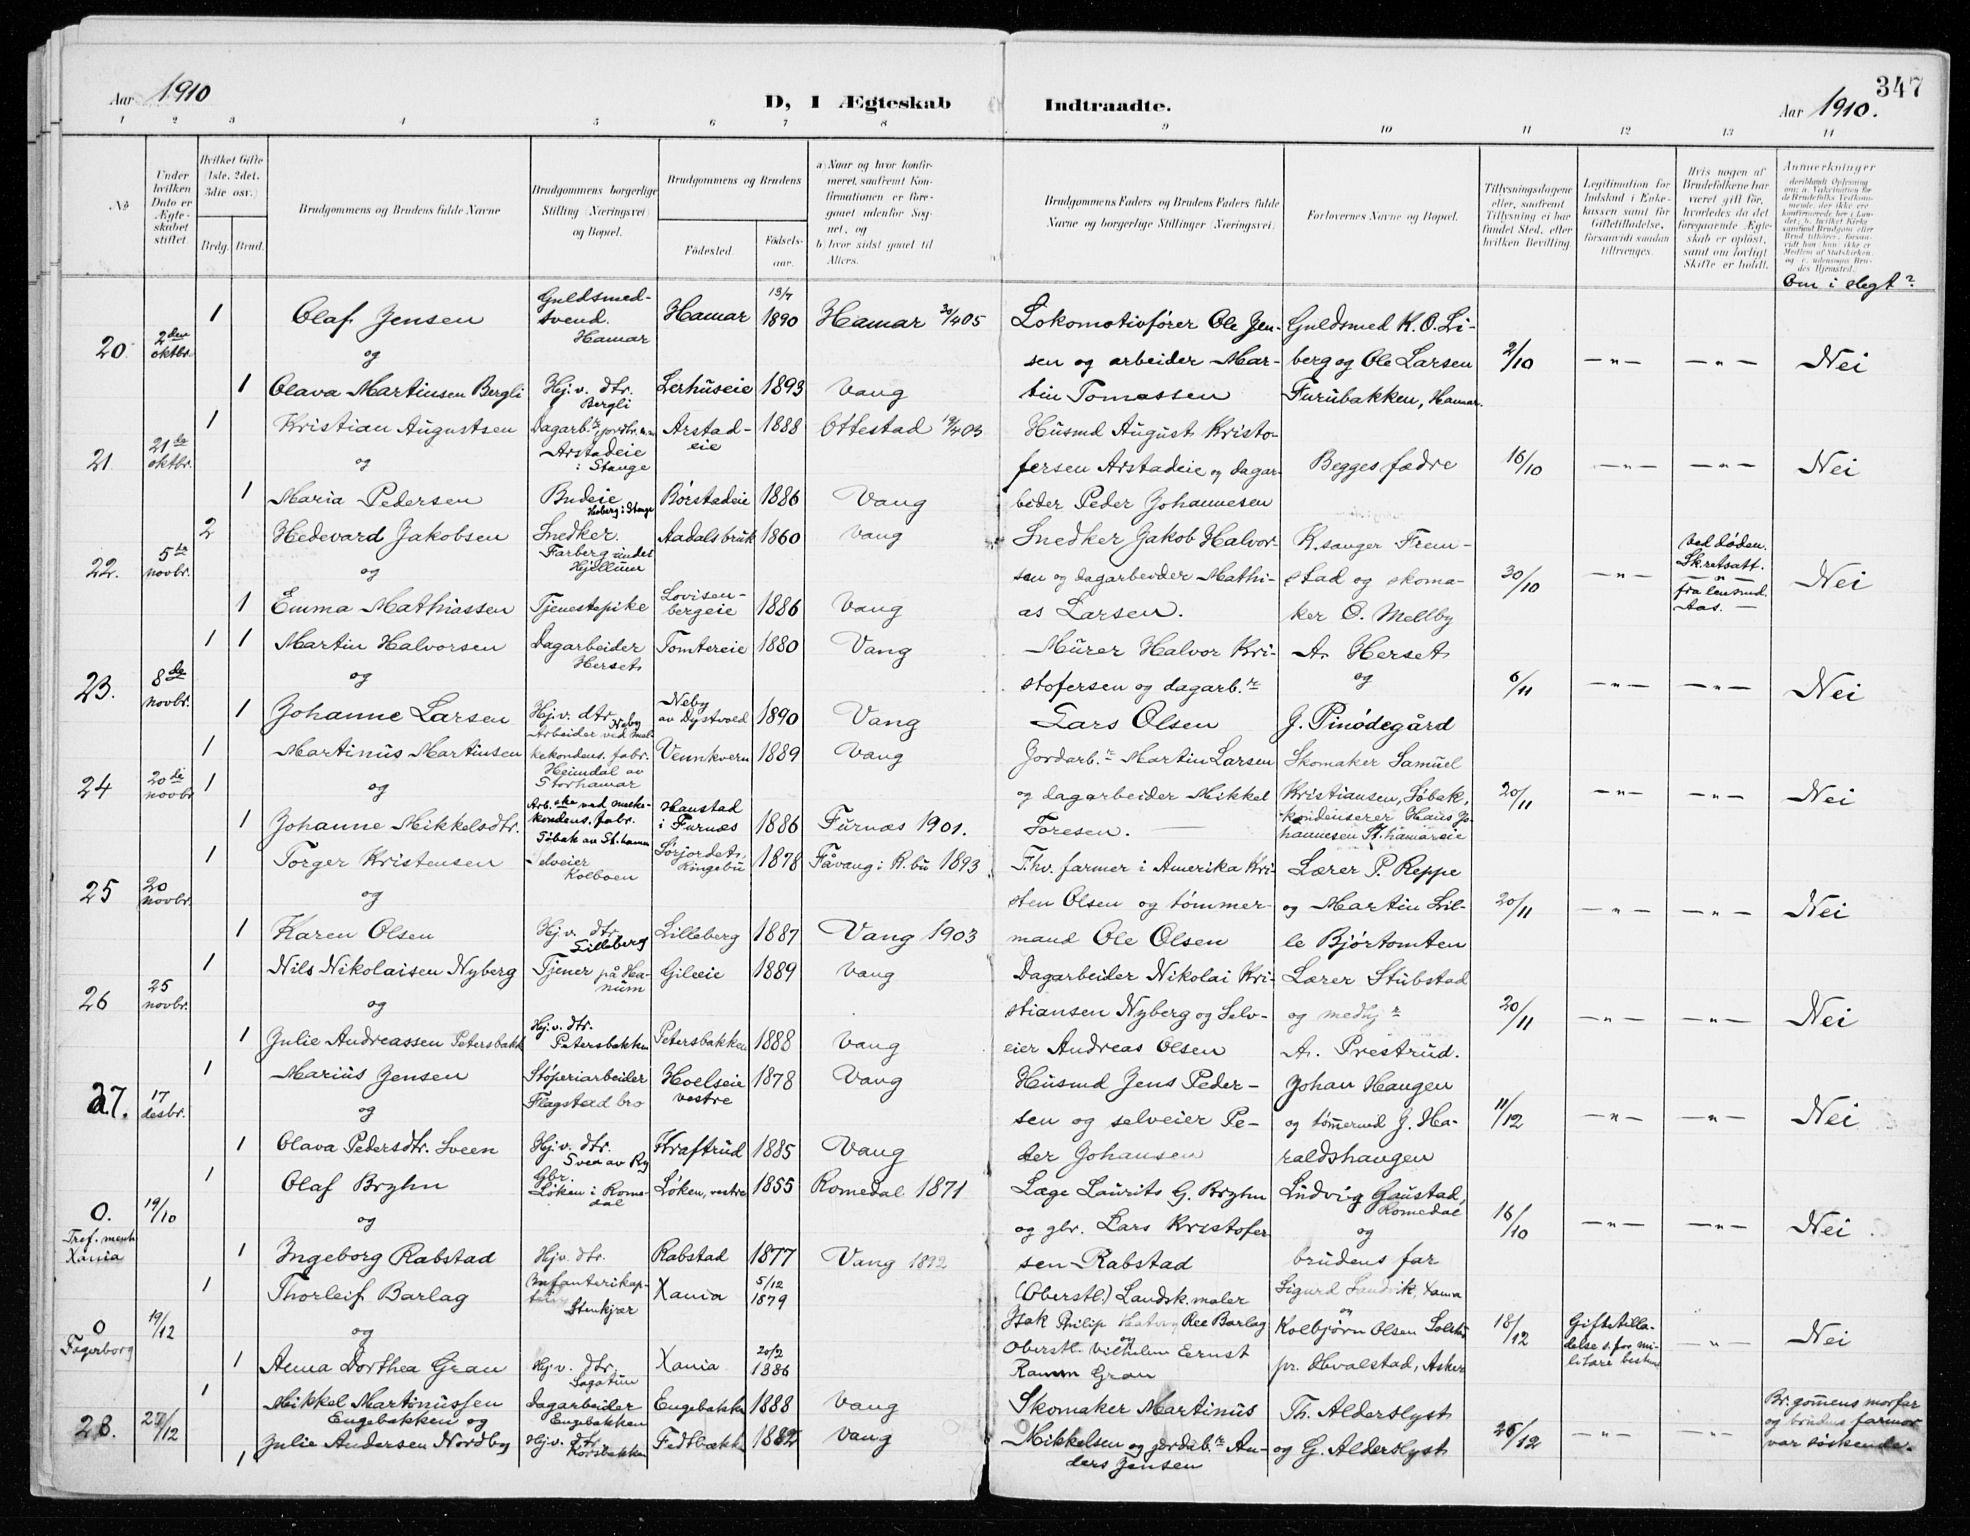 347
Aar 1910
D, I Ægteskab Indtraadte.
Aar 1910.
1 2 3 4 5 6 7 8 9 10 11 12 13 14
No
Under hvilken Dato er Ægteskabet stiftet.
Hvilket Gifte (1ste, 2det, 3die osv.)
Brdg. Brud.
Brudgommens og Brudens fulde Navne
Brudgommens borgerlige Stilling (Næringsvei) og Bopæl.
Brudgommens og Brudens
Fødested. Fødselsaar.
a) Naar og hvor konfirmeret, saafremt Konfirmationen er foregaaet udenfor Sognet, og
b) hvor sidst gaaet til Alters.
Brudgommens Faders og Brudens Faders fulde Navne og borgerlige Stillinger (Næringsvei)
Forlovernes Navne og Bopæl.
Tillysningsdagene eller, saafremt Tillysning ei har fundet Sted, efter hvilken Bevilling.
Legitimation for Indskud i Enkekassen samt for Giftetilladelse, forsaavidt saadan tiltrænges.
Hvis nogen af Brudefolkene har været gift før, hvorledes da det foregaaende Ægteskab er opløst, samt om lovligt Skifte er holdt.
Anmerkninger
Om i slegt?
20. 2den oktbr. 1 Olaf Jensen Guldsmedsvend. Hamar Hamar 13/7 1890 Hamar 30/4 05 Lokomotivfører Ole Jen- Guldsmed K.O. Li-
og sen og arbeider Mar- berg og Ole Larsen 2/10 —"— —"— Nei
1 Olava Martinsen Bergli Hj. v. dtr. Bergli Lerhuseie 1893 Vang tin Tomassen Furubakken, Hamar.
21 21de oktbr. 1 Kristian Augustsen Dagarb. Arstadeie i Stange Arstadeie 1888 Ottestad Husmd August Kristo-
og fersen Arstadeie og dagar- Begges fædre 16/10 —"— —"— Nei
1 Maria Pedersen Budeie Børstadeie 1886 Vang beider Peder Johannesen
22. 5te novbr. 2 Hedevard Jakobsen Snedker. Farberg Hjellum Aadalsbruk 1860 Vang Snedker Jakob Halvor- K. sanger Frem- ved døden.
og sen og dagarbeider Mathi- stad og skoma- 30/10 —"— Sk. retsatt. —"— fra lensmd. Aas. — Nei
1 Emma Mathiassen Tjenestepike Lovisenbergeie 1886 Vang as Larsen. ker O. Mellby
23. 8de novbr. 1 1 Martin Halvorsen Dagarbeider Herset Tomtereie 1880 Vang Murer Halvor Kri- A. Herset
og stofersen og dagarb.r og 6/11 —"— —"— Nei
1 Johanne Larsen Hj. v. dtr. Neby Neby av Dystvold 1890 Vang Lars Olsen J. Pinødegård
24 20de novbr 1 1 Martinus Martinsen Arbeider ved melkekondens. fabr. Heimdal av Storhamar Vennkvern 1889 Vang Jordarb.r Martin Larsen Skomaker Samuel
og og dagarbeider Mikkel Kristiansen, Søbak, 20/11 —"— —"— Nei
1 Johanne Mikkelsdtr. Arb.ske ved melkekondens. fabr. Søbak av St.hamar Hanstad i Furnæs 1886 Furnæs 1901. Toresen. — kondenserer Hans Johannesen St.hamareie
25 20 novbr. 1 Torger Kristensen Selveier Kolboen Sørjordet, Ringebu 1878 Fåvang i R.bu 1893 F.hv. farmer i Amerika Kri- Lærer P. Reppe
og sten Olsen og tømmer- og Martin Lil- 20/11 —"— —"— Nei
1 Karen Olsen Hj. v. dtr. Lilleberg Lilleberg 1887 Vang 1903 mand Ole Olsen le Bjørtomten
26 25 novbr. 1 Nils Nikolaisen Nyberg Tjener på Hanum Gileeie 1889 Vang Dagarbeider Nikolai Kri- Lærer Stubstad
og stiansen Nyberg og Selv- og medhj.r 20/11 —"— —"— Nei
1 Julie Andreassen Petersbakk Hj. v. dtr. Petersbakken Petersbakken 1888 Vang eier Andreas Olsen A. Prestrud.
27. 17 desbr. 1 Marius Jensen Støperiarbeider Flagstad bro Hoelseie vestre 1878 Vang Husmd Jens Peder- Johan Haugen
og sen og selveier Pe- og tømermd J. Ha- 11/12 —"— —"— Nei
1 Olava Pedersdtr. Sveen Hj. v. dtr. Sveen av Ry Kraftrud 1885 Vang der Johansen raldshaugen
0. Tref. menh Xania 19/10 1 Olaf Bryhn Gbr. Løken i Romedal Løken, vestre 1855 Romedal 1871 Læge Laurits G. Bryhn Ludvig Gaustad, Romedal
og og gbr. Lars Kristofer- og 16/10 —"— —"— Nei
1 Ingeborg Rabstad Hj. v. dtr. Rabstad 1877 Vang 1892 sen Rabstad brudens far
0 Fagerborg 19/12 1 Thorleif Barlag Infanterikaptein Stenkjær Xania 5/12 1879 (Oberstl.) Landsk. maler Sigurd Xania
og Isak Philip Ree Barlag og Kolbjørn Olsen 18/12 Giftetilladelse s. for militære —"— Nei
1 Anna Dorthea Gran Hj. v. dtr. Sagatun Xania 20/2 1886 Oberstl. Vilhelm Ernst Ramm Gran pr. Hvalstad, Asker
28. 27/12 1 Mikkel Martinussen Engebakken og Dagarbeider Engebakken Engebakk 1888 Vang Skomaker Martinus Th. Alderslyst Br.gommens morfar
1 Julie Andersen Nordby Hj. v. dtr. Korsbakken Fedtbækk 1882 Vang Mikkelsen og jordab.r Anders Jensen og G. Alderslyst 26/12 —"— —"— og brudens farmor var søskende.